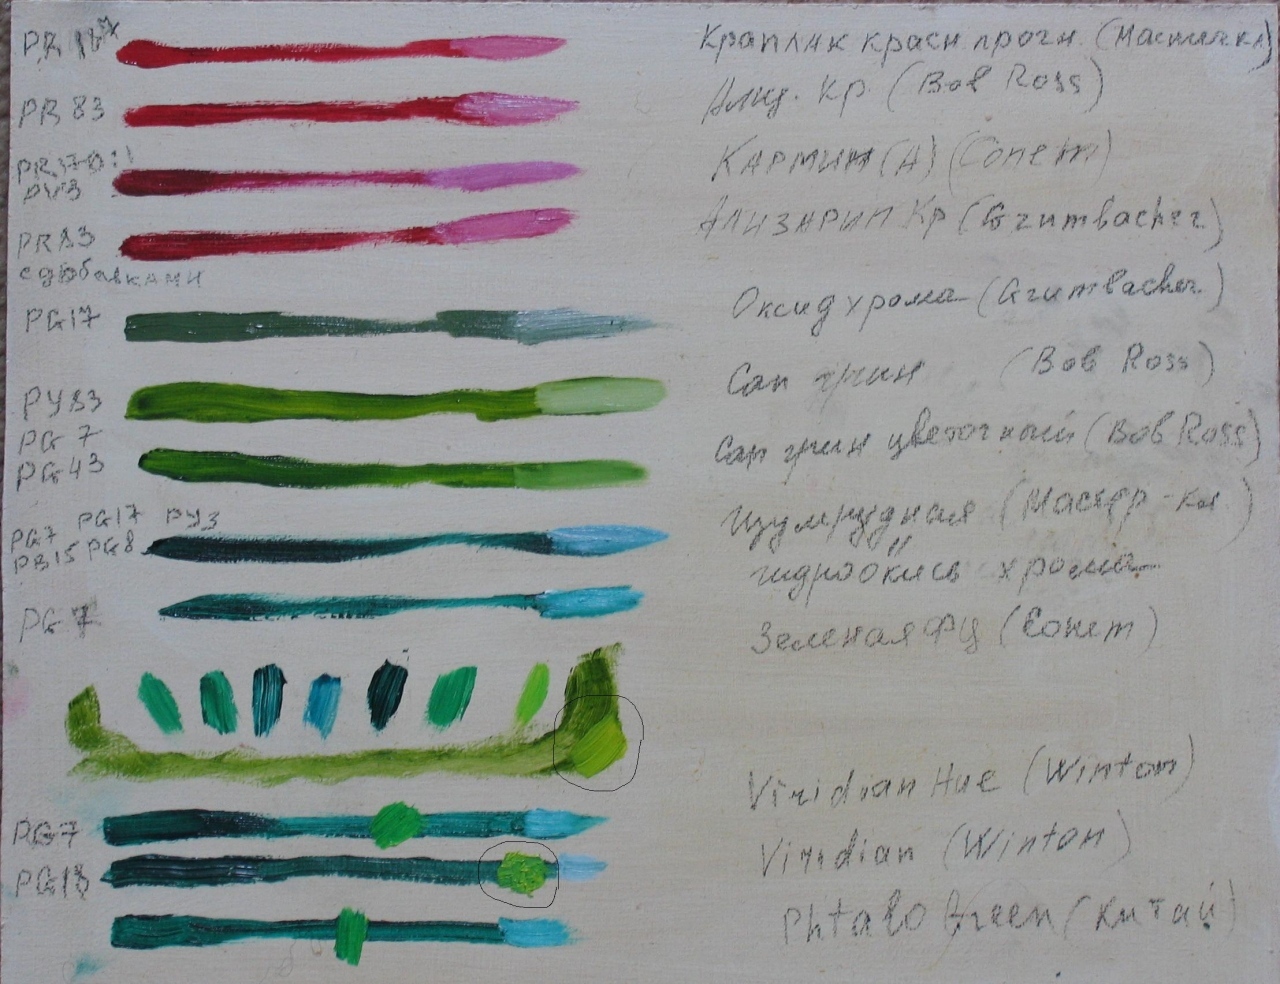 PR 187 Краплак красн прозн. (Мастеркл)
PR 83 Ализ. Кр (Bob Ross)
PR 170:1 Кармин (А) (Сонет)
PV3
PR83 Ализарин Кр (Grumbacher)
с добавками
PG17 Оксид хрома (Grumbacher)
PY83 Сап грин (Bob Ross)
PG 7 Сап грин цветочный (Bob Ross)
PG 43
PG17 PY3 Изумрудная (Мастер-кл)
PG7
PB15 PG8 гидроокись хрома
PG 7 Зеленая ФЦ (Сонет)
Viridian Hue (Winton)
PG7
Viridian (Winton)
PG18
Phtalo Green (Китай)